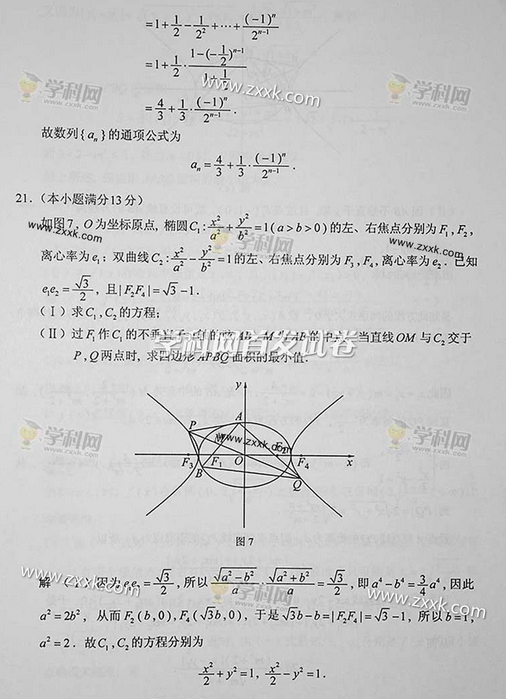 = 1 + 1/2 - 1/2² + ⋯ + (-1)ⁿ/2ⁿ⁻¹
= 1 + 1/2 · (1-(-1/2)ⁿ⁻¹)/(1+1/2)
= 4/3 + 1/3 · (-1)ⁿ/2ⁿ⁻¹ .
故数列{aₙ}的通项公式为
aₙ = 4/3 + 1/3 · (-1)ⁿ/2ⁿ⁻¹ .
21.（本小题满分13分）
如图7，O为坐标原点，椭圆C₁: x²/a² + y²/b² = 1(a>b>0)的左、右焦点分别为F₁,F₂,
离心率为e₁；双曲线C₂: x²/a² - y²/b² = 1的左、右焦点分别为F₃,F₄,离心率为e₂．已知
e₁e₂ = √3/2，且|F₂F₄| = √3-1.
(Ⅰ)求C₁,C₂的方程；
(Ⅱ)过F₁作C₁的不垂 当直线OM与C₂交于
P,Q两点时，求四边形APBQ面积的最小值.
y
P
A
F₃
F₁
O
F₂
F₄
x
B
Q
图7
解 因为e₁e₂ = √3/2，所以 √(a²-b²)/a · √(a²+b²)/a = √3/2，即a⁴-b⁴ = 3/4 a⁴，因此
a² = 2b²，从而F₂(b,0),F₄(√3b,0)，于是√3b-b = |F₂F₄| = √3-1，所以b=1，
a² = 2．故C₁,C₂的方程分别为
x²/2 + y² = 1, x²/2 - y² = 1.
学科网
www.zxxk.com
学科网首发试卷